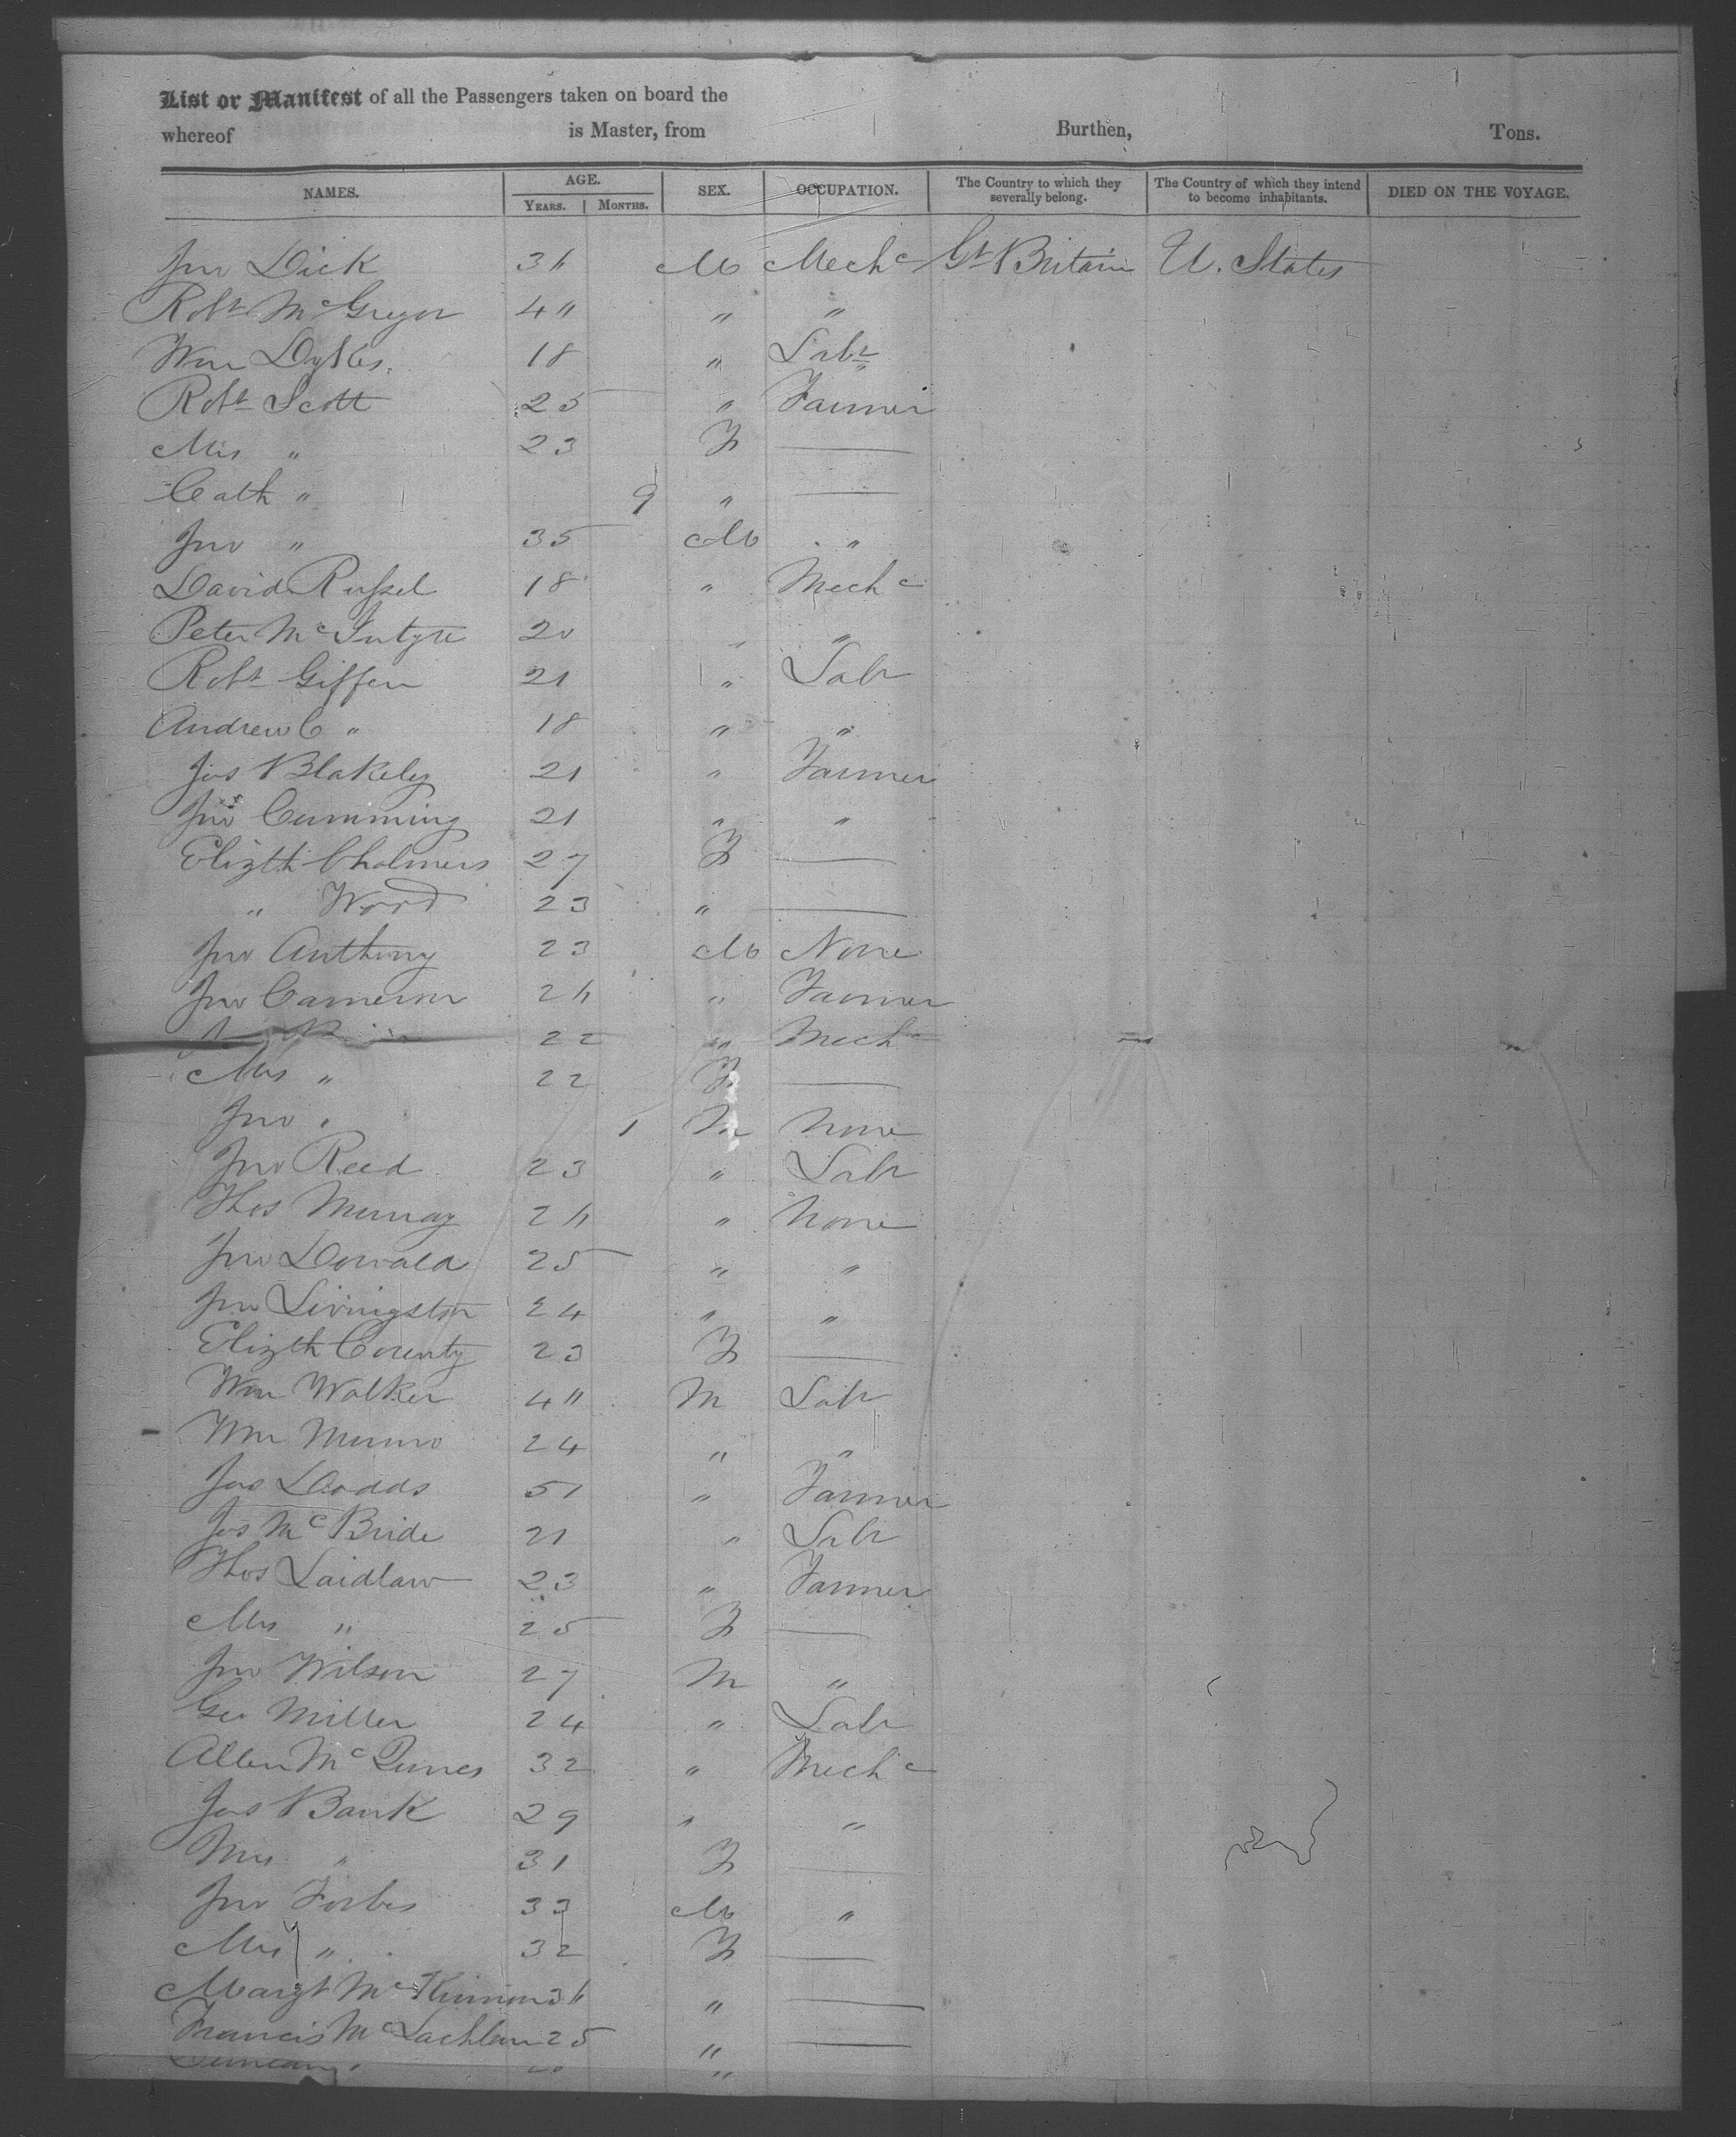 List or Manifest of all the Passengers taken on board the
whereof is Master, from Burthen, Tons.
NAMES. AGE. SEX. OCCUPATION. The Country to which they severally belong. The Country of which they intend to become inhabitants. DIED ON THE VOYAGE.
YEARS. MONTHS.
Jno Dick 36 M Mechc Gt Britain U. States
Robt McGregor 40 " "
Wm Dykes 18 " Labr
Robt Scott 25 " Farmer
Mrs " 23 F —
Cath " 9 " —
Jno " 35 M "
David Russel 18 " Mechc
Peter McIntyre 20 " "
Robt Giffen 21 " Labr
Andrew C " 18 " "
Jas Blakeley 21 " Farmer
Jno Cumming 21 " "
Elizth Chalmers 27 F —
" Wood 23 " —
Jno Anthony 23 M None
Jno Cameron 26 " Farmer
22 " Mechc
Mrs " 22 F —
Jno " 1 M None
Jno Reed 23 " Labr
Thos Murray 26 " None
Jno Dowald 25 " "
Jno Livingston 24 " "
Elizth County 23 F —
Wm Walker 40 M Labr
Wm Munro 24 " "
Jas Dodds 51 " Farmer
Jas McBride 21 " Labr
Thos Laidlaw 23 " Farmer
Mrs " 25 F —
Jno Wilson 27 M "
Geo Miller 24 " Labr
Allen McInnes 32 " Mechc
Jas Bank 29 " "
Mrs " 31 F —
Jno Forbes 33 M "
Mrs " 32 F —
Margt McKinnon 36 " —
Francis McLachlan 25 " —
Duncan " "